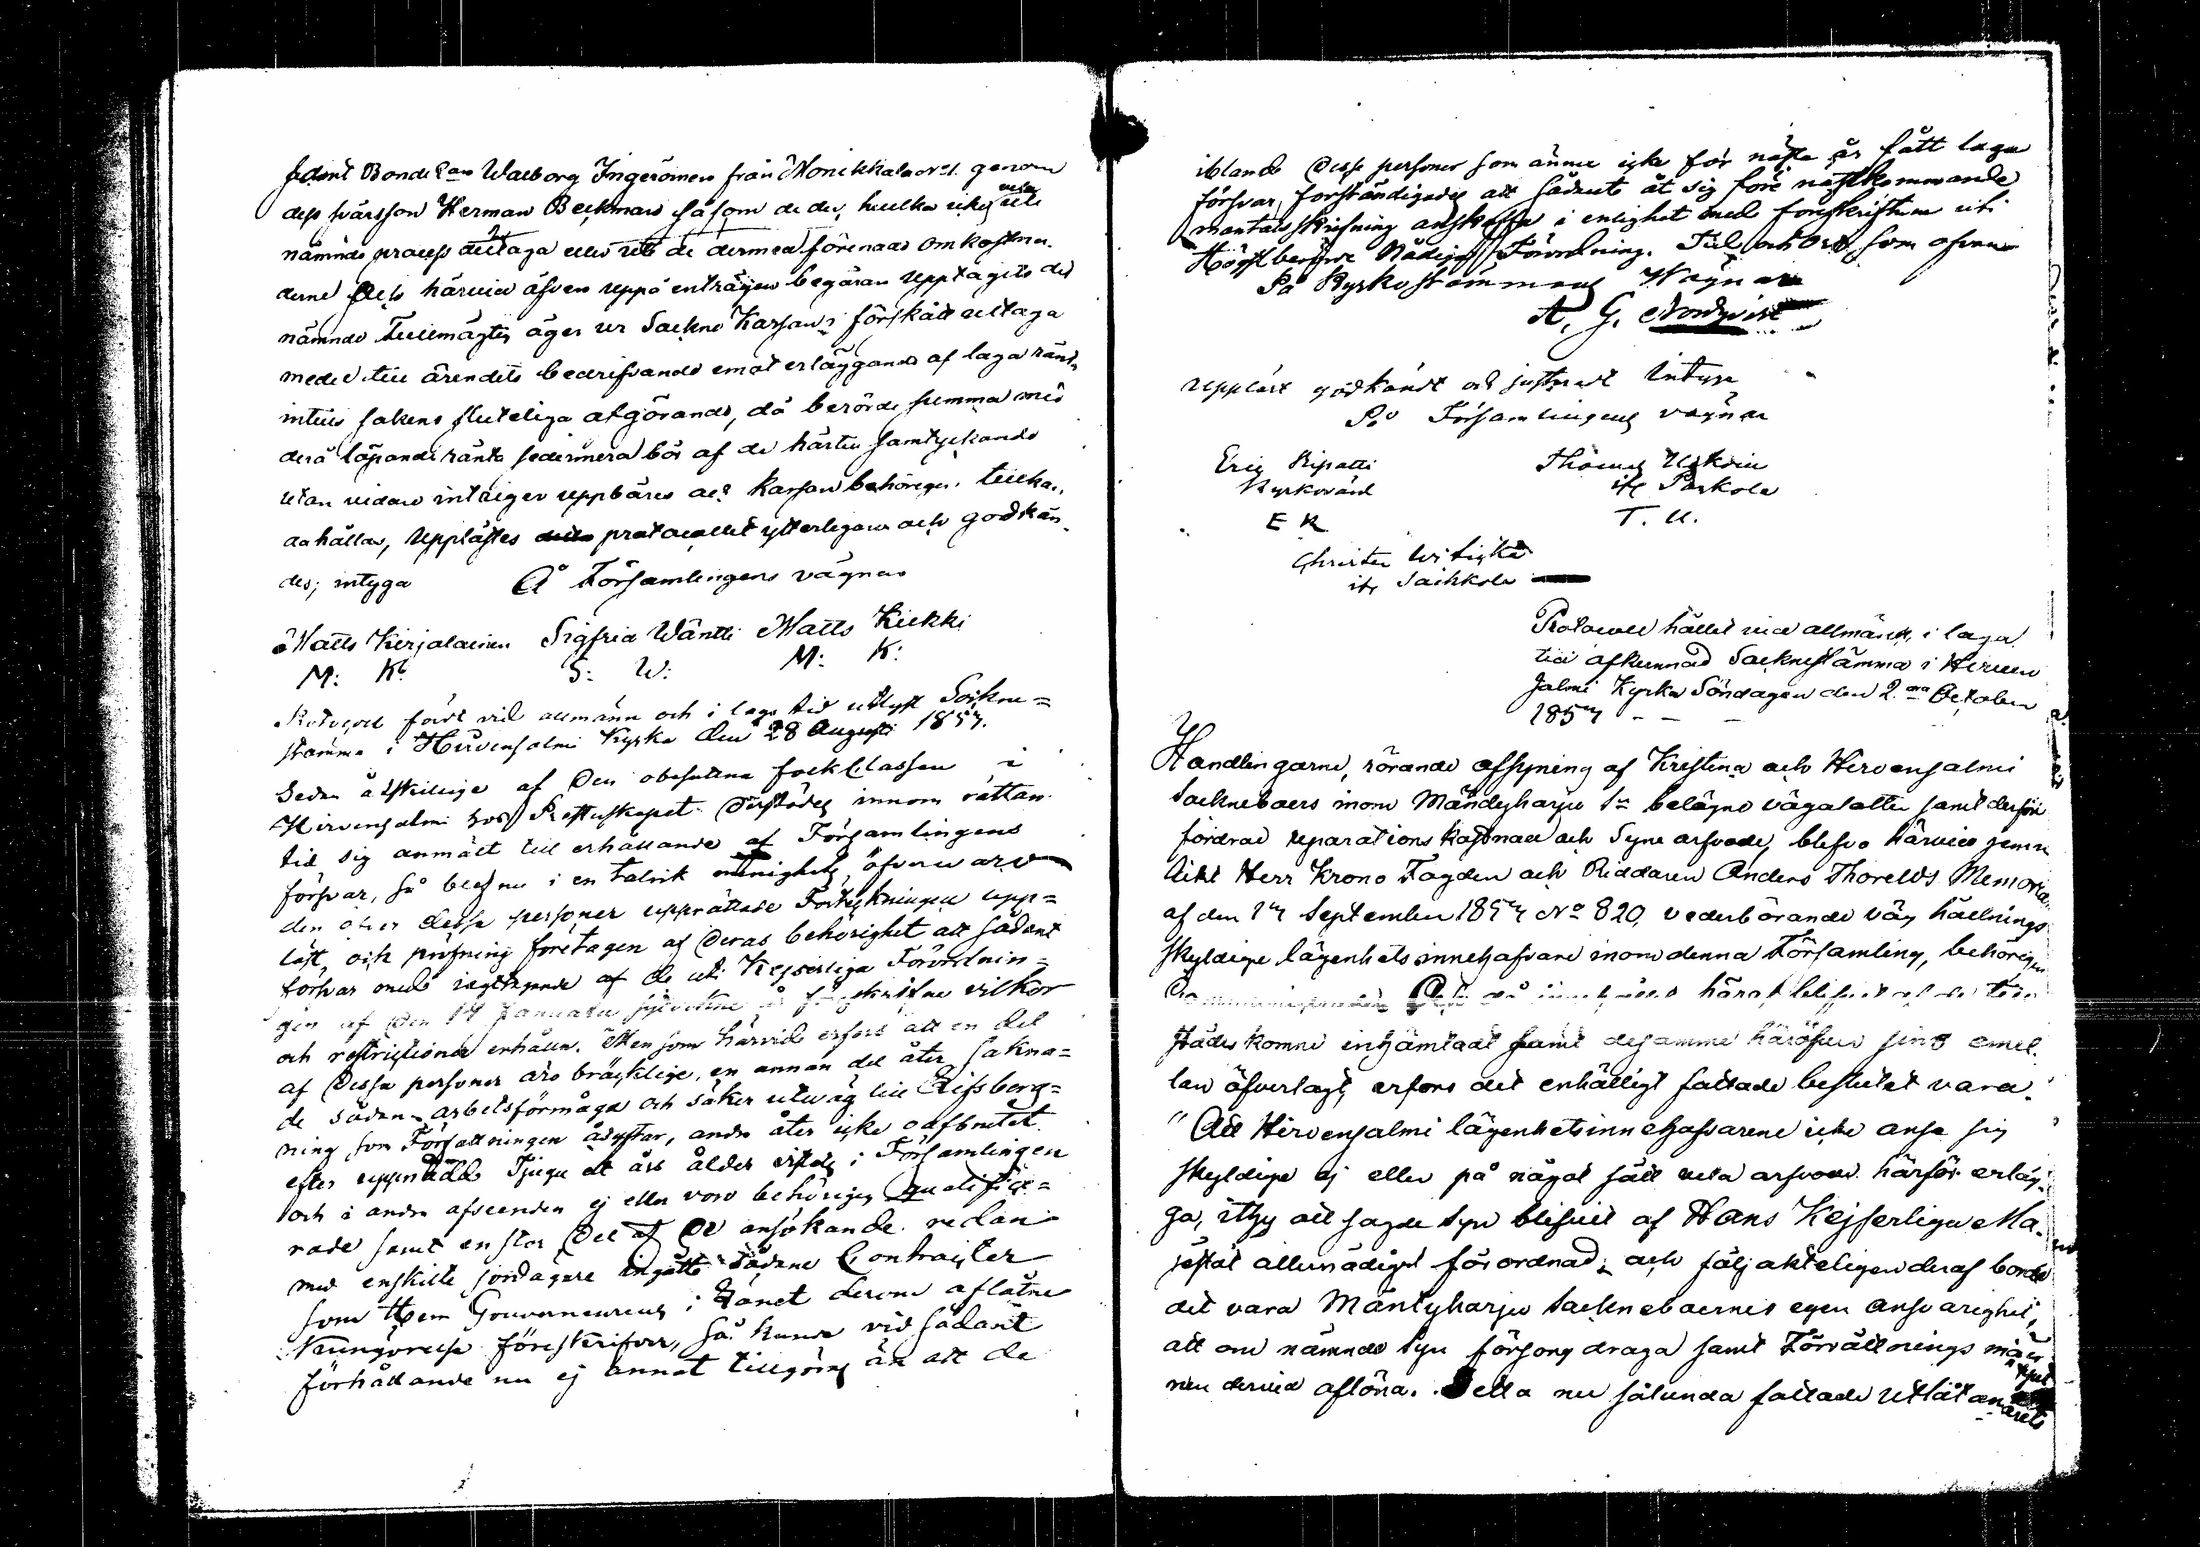 samt Bonde Enn Walborg Ingeroinen från Monikkala No 1. genom
dess svärsson Herman Beckman såsom de der, hvilka icke velat uti
nämnde process deltaga eller uti de dermed förenade omkostna-
derne. Och härvid äfven uppå enträgen begäran upptagits det
nämnde Fullmägtig äger ur Sockne Kassan i förskått uttaga
medel till ärendets bedrifvande emot erläggande af laga ränta
intill sakens sluteliga afgörande, då berörde summa med
derå löpande ränta sedermera bör af de härtill samtyckande
utan vidare intalger uppbäras och Kassan behörigen tillhan-
dahållas, Upplästes protocollet ytterligare och godkän-
des; intyga Å Församlingens vägnar
Matts Kirjalainen Sigfrid Wäntti Matts Kiekki
M: K: S: W: M: K:
Protocoll fördt vid allmänn och i laga tid utlyst Sockne=
stämma i Hirvensalmi Kyrka den 28 Augusti 1857.
Sedan åtskillige af den obesuttna folkklassen i
Hirvensalmi hos Presterskapet derstädes innom rättan
tid sig anmält till erhållande af Församlingens
försvar, så blef nu i en talrik menighets öfvervaro
den öfver dessa personer upprättade Förteckningen upp=
läst, och pröfning företagen af deras behörighet att sådant
försvar med iagttagande af de uti Kejserliga Förordnin=
gen af den 19 Januarii sistledne år föreskrifne vilkor
och restrictioner erhålla. Men som härvid erfors att en del
af dessa personer äro bräcklige, en annan del åter sakna=
de sådan arbetsförmåga och säker utväg till Lifsberg=
ning som Författningen åsyftar, andra åter icke oafbrutet
efter uppnådde Tjugu ett års ålder vistats i Församlingen
och i andra afseenden ej eller voro behörigen qualifice=
rade samt en stor del af de ansökande redan
med enskilte jordägare ingått sådane Contracter
som Herr Gouverneurens i Länet derom aflåtne
Kungörelse föreskrifver, så kunde vid sådant
förhållande nu ej annat tillgöras än att de
ibland desse personer som ännu icke för nästa år fått laga
försvar, förständigades att sådant åt sig före nästkommande
mantals skrifning anskaffa i enlighet med föreskriften uti
Högstberörde Nådiga Förordning. Tid och Ort som ofvan
På Kyrkostämmans Wägnar
A. G. Nordqvist
Uppläst godkändt och justeradt Intyga
På Församlingens vägnar
Eric Ripatti Thomas Ukkoin
Kyrkovärd ifr Parkola
E R T. U.
Christer Witicka
ifr Saikkola
Protocoll hållet vid allmän, i laga
tid afkunnad Socknestämma i Hirven
salmi Kyrka Söndagen den 2 dra October
1857
Handlingarne, rörande afsyning af Kristina och Hirvensalmi
Sockneboers inom Mändyharju Sn belägne vägalotter samt derför
fordrad reparations kostnad och Syne arfvode, blefvo härvid jemn
likt Herr Krono Fogden och Riddaren Anders Thorelds Memorial
af den 17 September 1857 No 820, vederbörande väg hållnings
skyldige lägenhets innehafvare inom denna Församling, behörigen
då innehållet häraf blifvit af de till
städes komne inhämtadt samt desamme häröfver sins emel-
lan öfverlagt, erfors det enhälligt fattade beslutet vara:
"Att Hirvensalmi lägenhetsinnehafvarene icke anse sig
skyldige ej eller på något sätt vela arfvode härför erläg-
ga, ithy att sagde Syn blifvit af Hans Kejserliga Ma-
jestät allernådigst förordnad, och följakteligen deraf borde
det vara Mäntyharju Socknebornes egen ansvarighet,
att om nämnde syn försorg draga samt Förrättnings män
nen dervid aflöna. Detta nu sålunda fattade Utlåtan